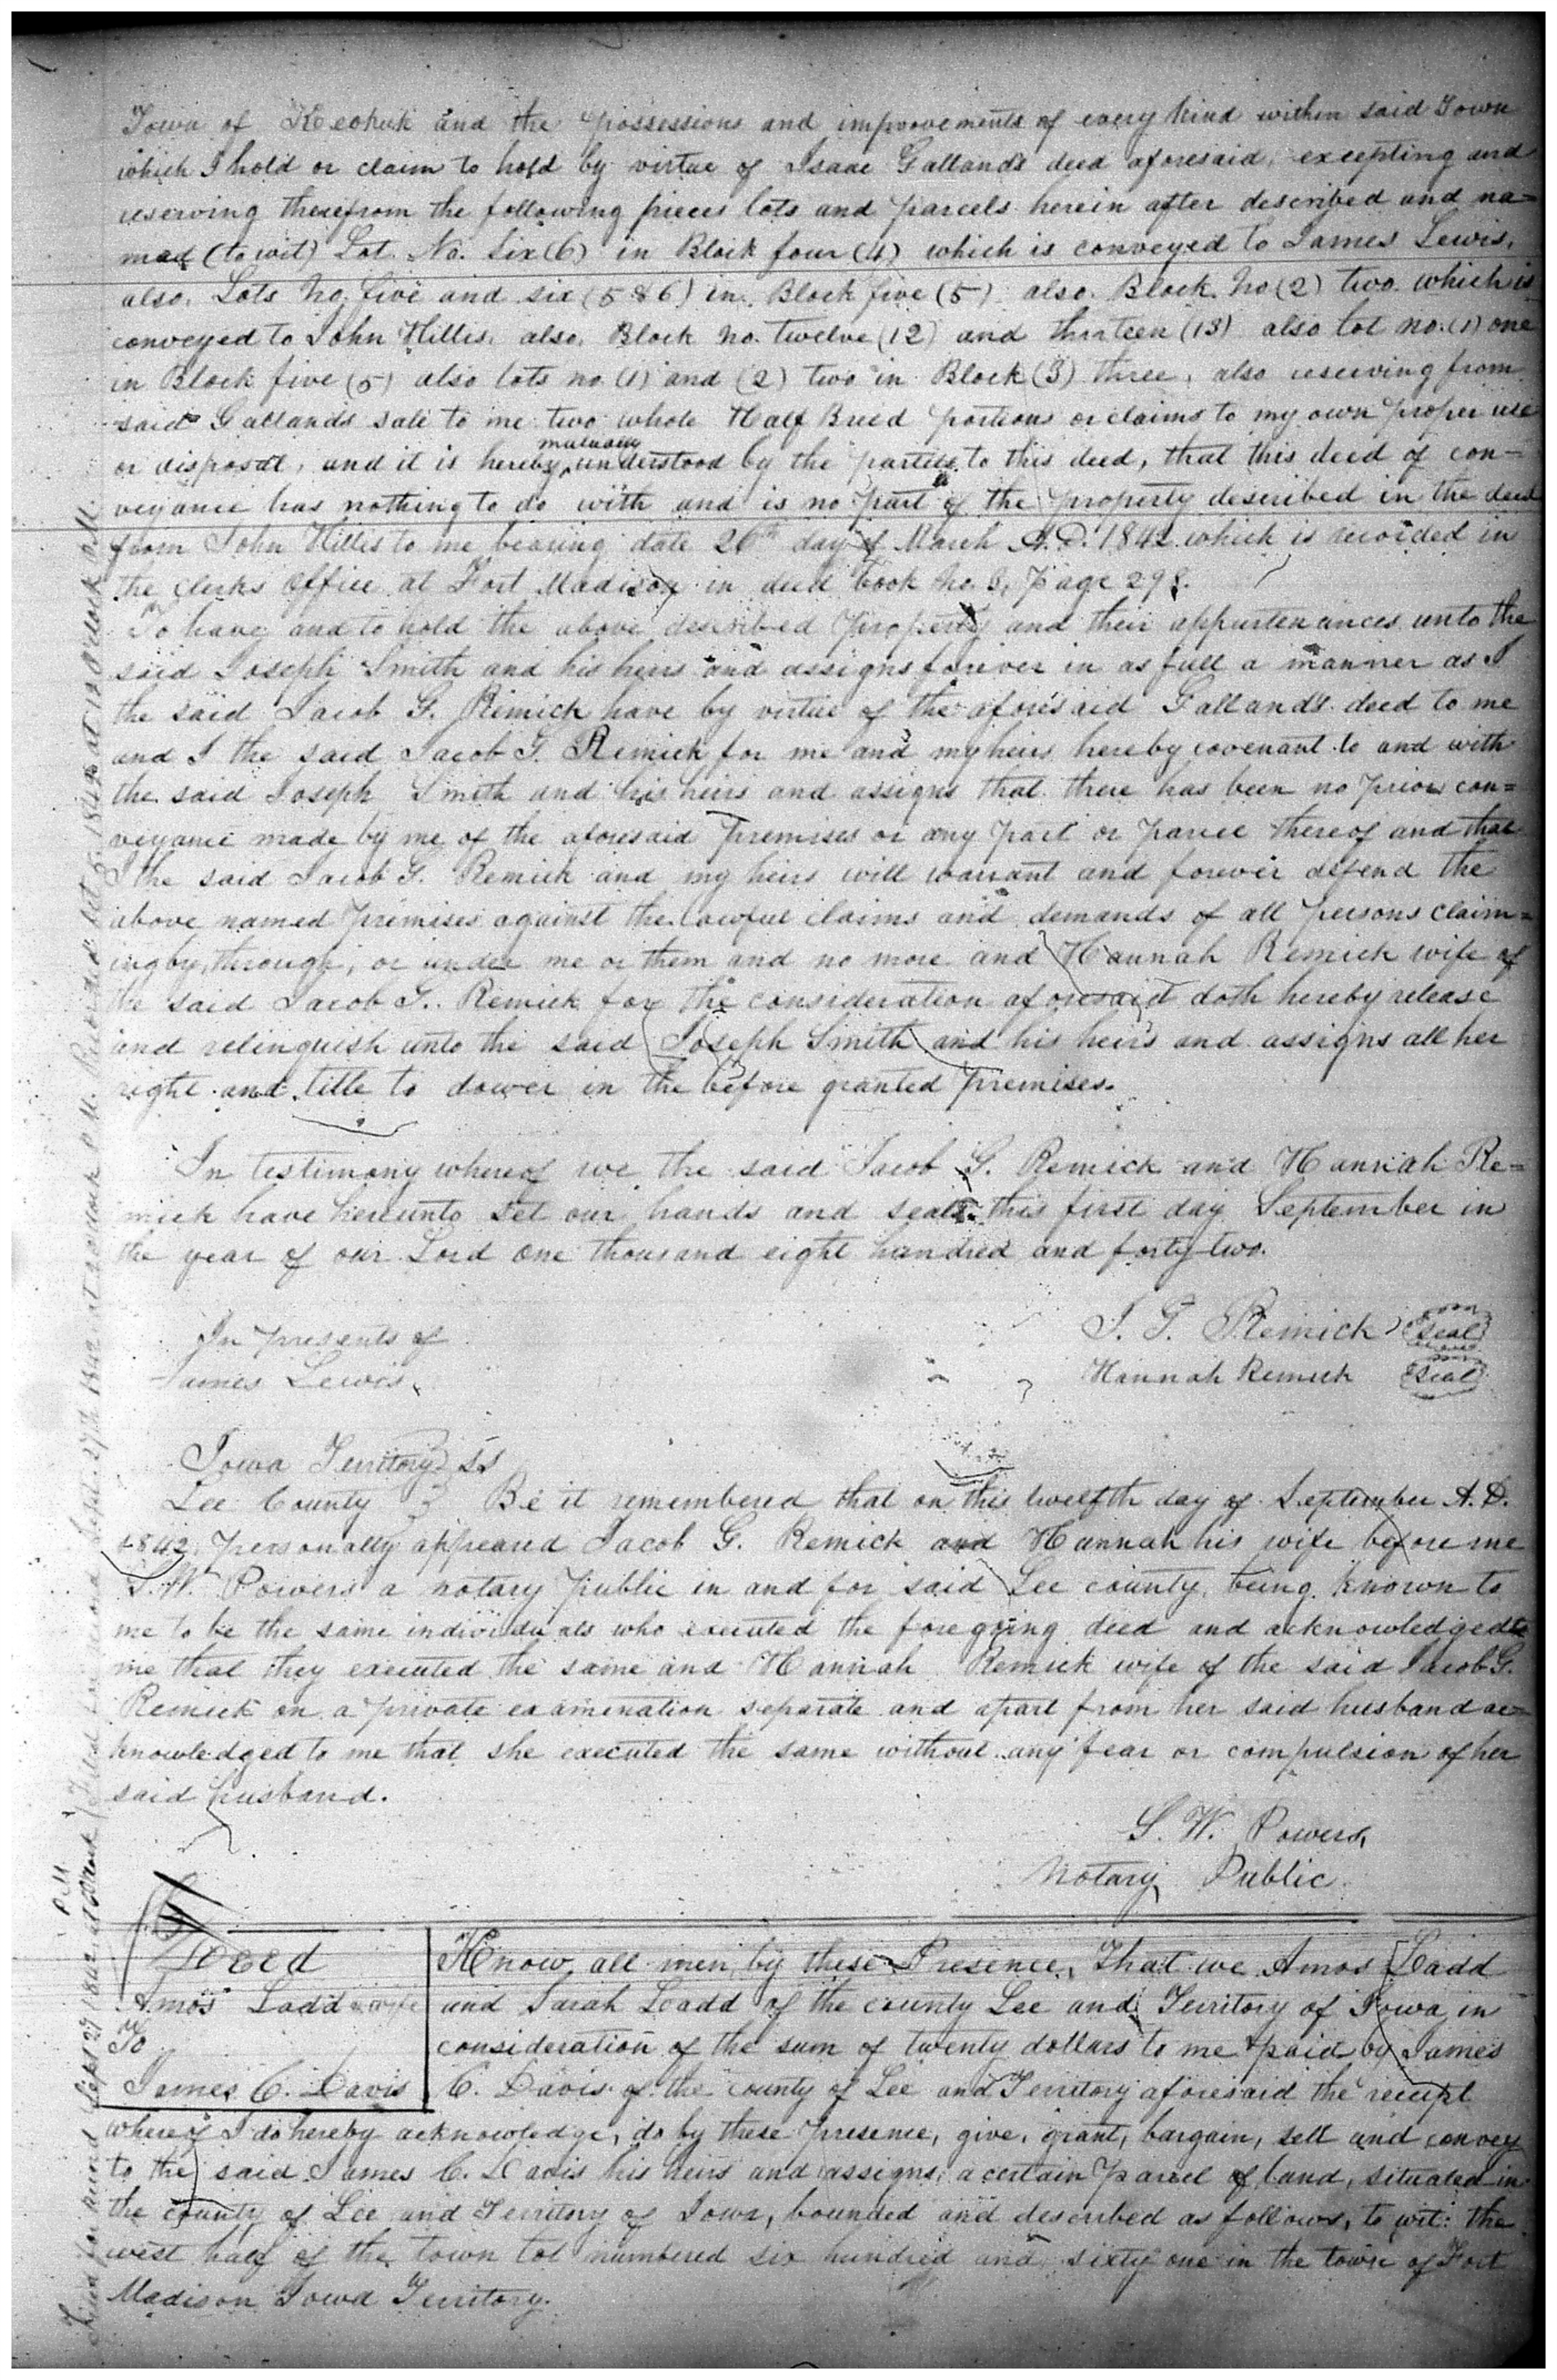 Town of Keokuk and the possessions and improovements of every kind within said Town
which I hold or claim to hold by virtue of Isaac Gallands deed aforesaid, excepting and
reserving therefrom the following pieces lots and parcels herein after described and na=
med (to wit) Lot No. Six (6) in Block four (4) which is conveyed to James Lewis,
also. Lots No. five and six (5 & 6) in Block five (5) also. Block. No (2) two which is
conveyed to John Hillis. also. Block no. twelve (12) and thirteen (13) also lot no. (1) one
in Block five (5) also lots no. (1) and (2) two in Block (3) three, also reserving from
said Gallands sale to me two whole Half Breed portions or claims to my own proper use
or disposal, and it is hereby mutually understood by the parties to this deed, that this deed of con-
veyance has nothing to do with and is no part of the property described in the deed
from John Hillis to me bearing date 26th day of March A.D. 1842 which is recorded in
the clerks office at Fort Madison in deed book No. 3, Page 298.
To have and to hold the above described property and their appurtenances unto the
said Joseph Smith and his heirs and assigns forever in as full a manner as I
the said Jacob G. Remick have by virtue of the aforesaid Galland's deed to me
and I the said Jacob G. Remick for me and my heirs hereby covenant to and with
the said Joseph Smith and his heirs and assigns that there has been no prior con=
veyance made by me of the aforesaid premises or any part or parcel thereof and that
I the said Jacob G. Remick and my heirs will warrant and forever defend the
above named premises against the lawful claims and demands of all persons claim=
ing by, through, or under me or them and no more and Hannah Remick wife of
the said Jacob G. Remick for the consideration aforesaid doth hereby release
and relinquish unto the said Joseph Smith and his heirs and assigns all her
right and title to dower in the before granted premises.
In testimony whereof we the said Jacob G. Remick and Hannah Re=
mick have hereunto set our hands and seals this first day September in
the year of our Lord one thousand eight hundred and forty two.
In presents of
James Lewis.
J. G. Remick (Seal)
Hannah Remick (Seal)
Iowa Territory } SS
Lee County } Be it remembered that on this twelfth day of September A.D.
1842, personally appeared Jacob G. Remick and Hannah his wife before me
S. W. Powers a notary public in and for said Lee county, being known to
me to be the same individuals who executed the foregoing deed and acknowledged to
me that they executed the same and Hannah Remick wife of the said Jacob G.
Remick on a private examination separate and apart from her said husband ac=
knowledged to me that she executed the same without any fear or compulsion of her
said husband.
S. W. Powers,
Notary Public.
Deed
Amos Ladd & wife
To
James C. Davis
Know all men by these Presence, That we Amos Ladd
and Sarah Ladd of the county Lee and Territory of Iowa in
consideration of the sum of twenty dollars to me paid by James
C. Davis of the county of Lee and Territory aforesaid the receipt
whereof I do hereby acknowledge, do by these presence, give, grant, bargain, sell and convey
to the said James C. Davis his heirs and assigns, a certain parcel of land, situated in
the county of Lee and Territory of Iowa, bounded and described as follows, to wit: the
west half of the town lot numbered six hundred and sixty one in the town of Fort
Madison Iowa Territory.